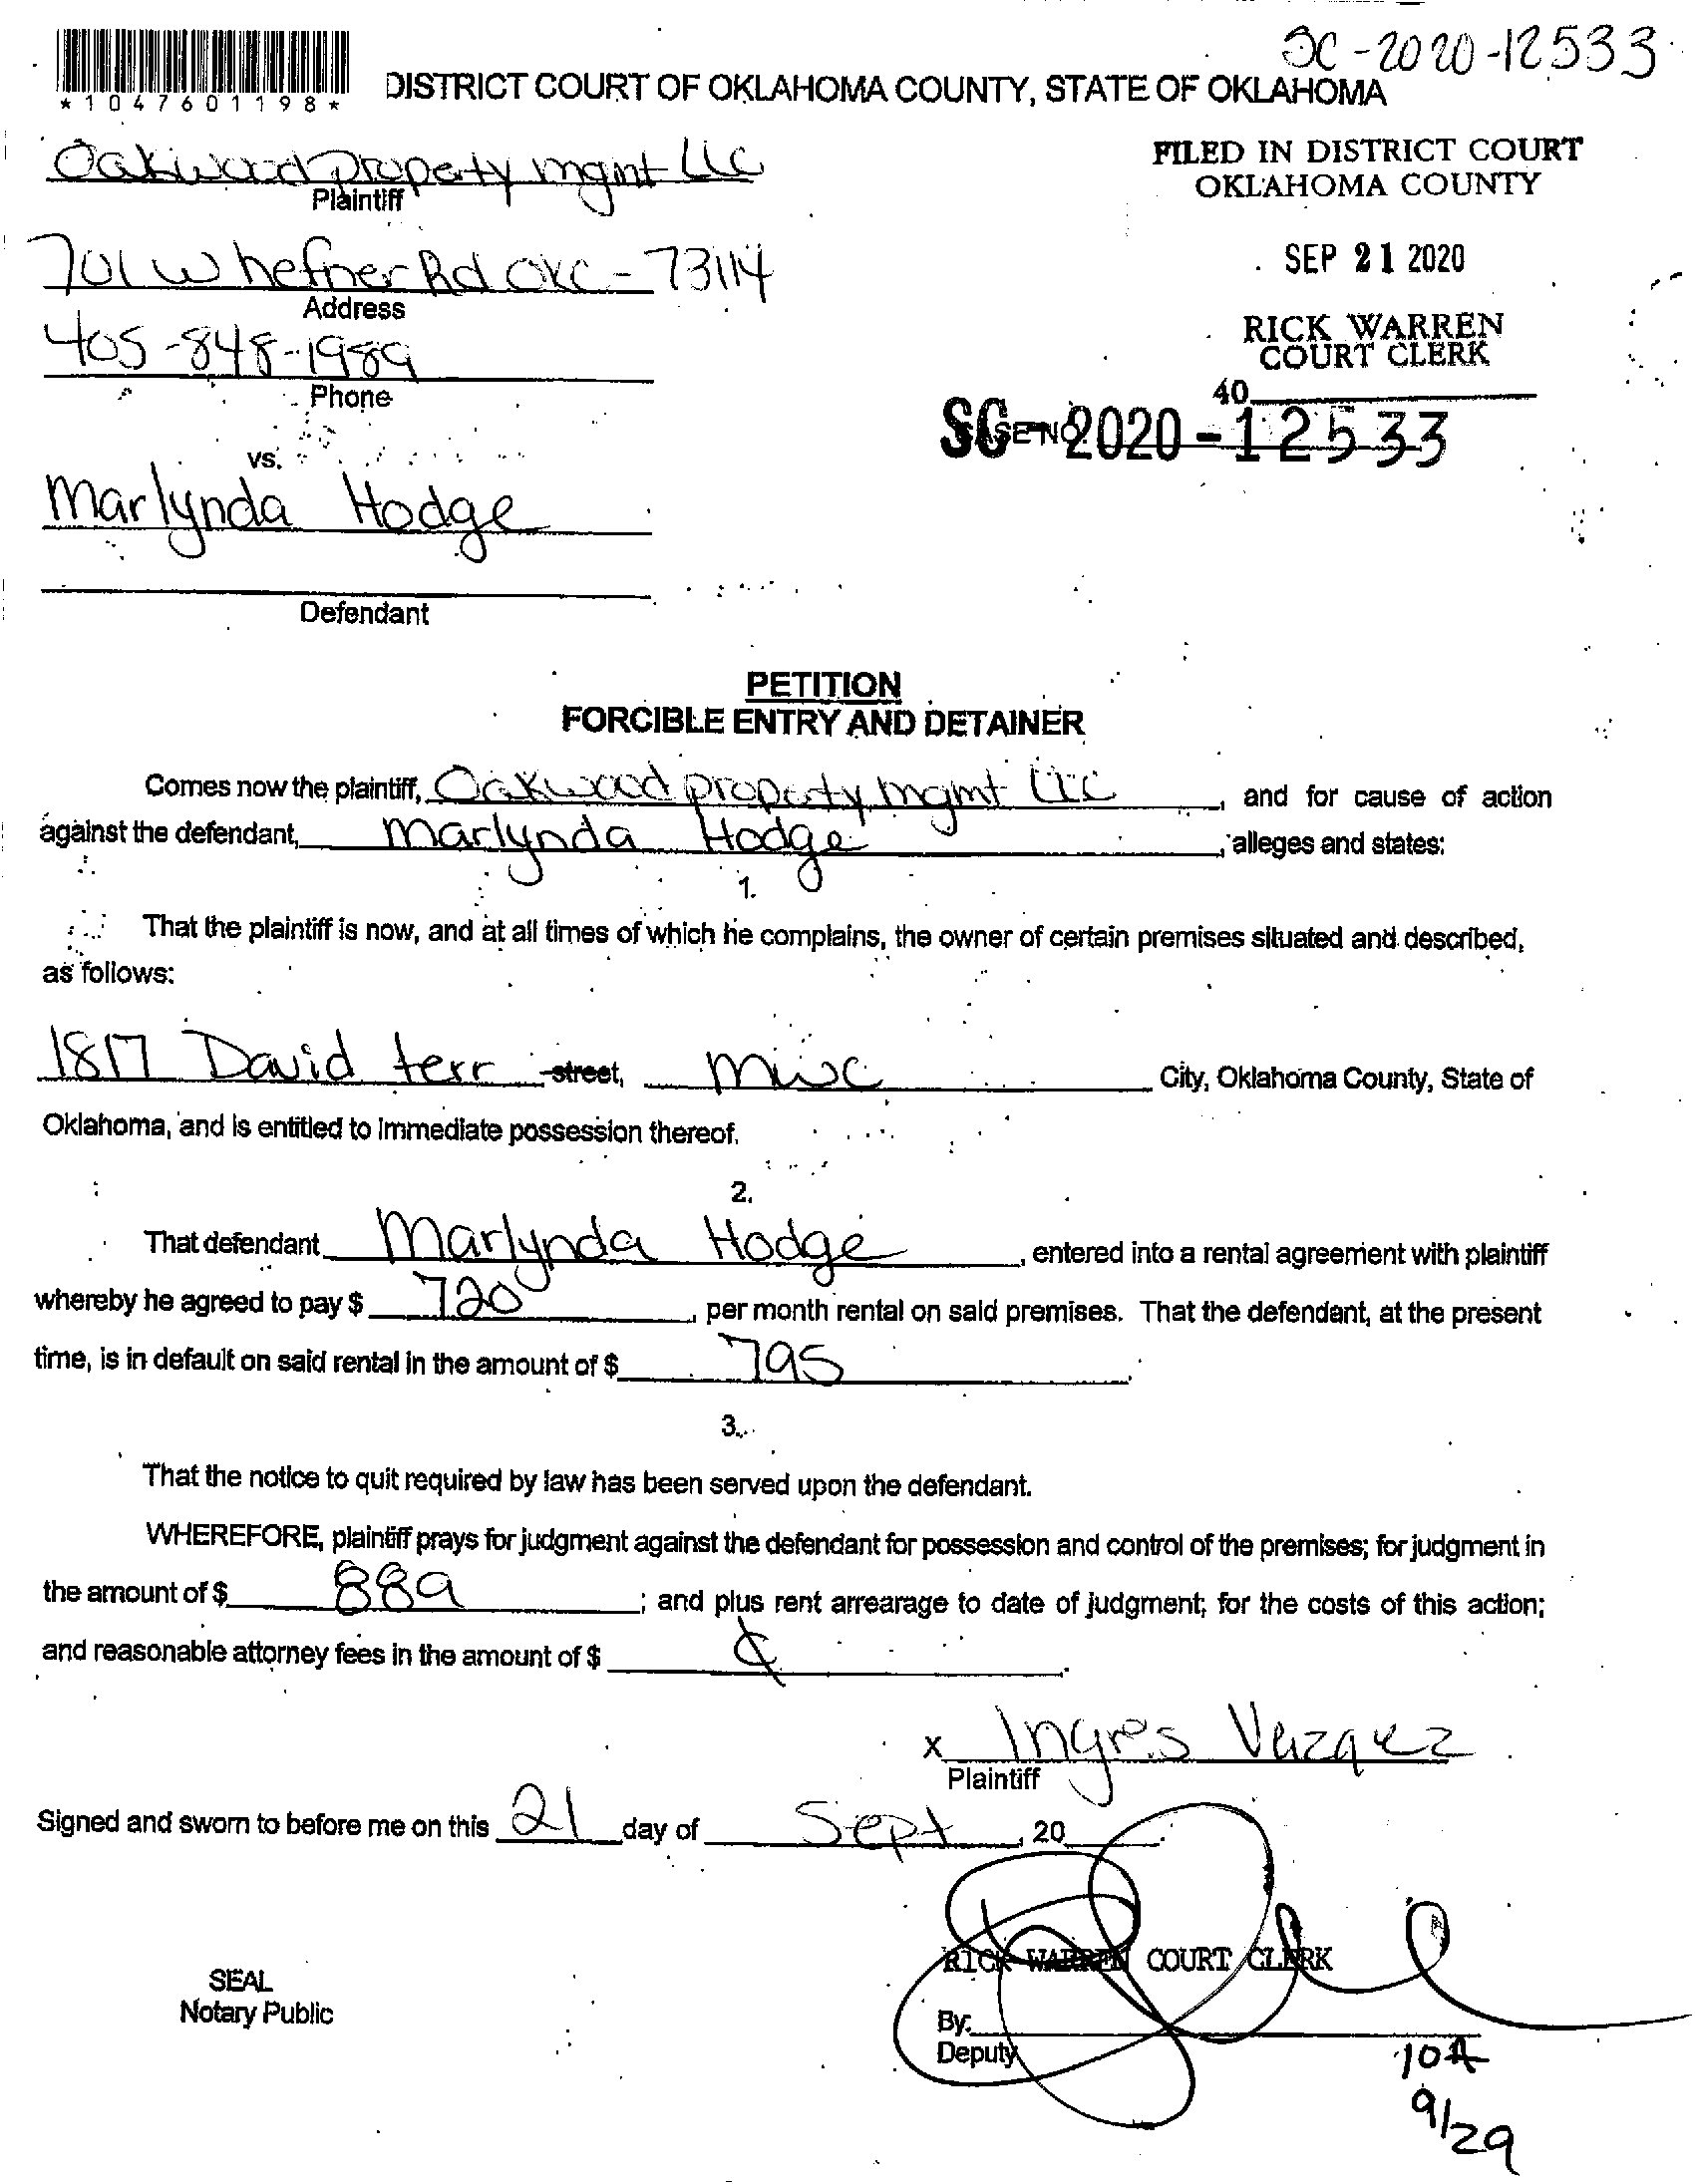 SC-2020-12533
*1047601198*
DISTRICT COURT OF OKLAHOMA COUNTY, STATE OF OKLAHOMA
Oakwood property mgmt LLC
Plaintiff
FILED IN DISTRICT COURT
OKLAHOMA COUNTY
701 W hefner Rd OKC - 73114
Address
SEP 21 2020
405-848-1989
Phone
RICK WARREN
COURT CLERK
40
SC-2020-12533
CASE NO.
vs.
Marlynda Hodge
Defendant
PETITION
FORCIBLE ENTRY AND DETAINER
Comes now the plaintiff, Oakwood property mgmt LLC, and for cause of action
against the defendant, Marlynda Hodge, alleges and states:
1.
That the plaintiff is now, and at all times of which he complains, the owner of certain premises situated and described,
as follows:
1817 David terr street, mwc City, Oklahoma County, State of
Oklahoma, and is entitled to immediate possession thereof.
2.
That defendant Marlynda Hodge, entered into a rental agreement with plaintiff
whereby he agreed to pay $ 720, per month rental on said premises. That the defendant, at the present
time, is in default on said rental in the amount of $ 795.
3.
That the notice to quit required by law has been served upon the defendant.
WHEREFORE, plaintiff prays for judgment against the defendant for possession and control of the premises; for judgment in
the amount of $ 889; and plus rent arrearage to date of judgment; for the costs of this action;
and reasonable attorney fees in the amount of $
x Ingres Vazquez
Plaintiff
Signed and sworn to before me on this 21 day of Sept, 20
RICK WARREN COURT CLERK
SEAL
Notary Public
By:
Deputy
10A
9/29